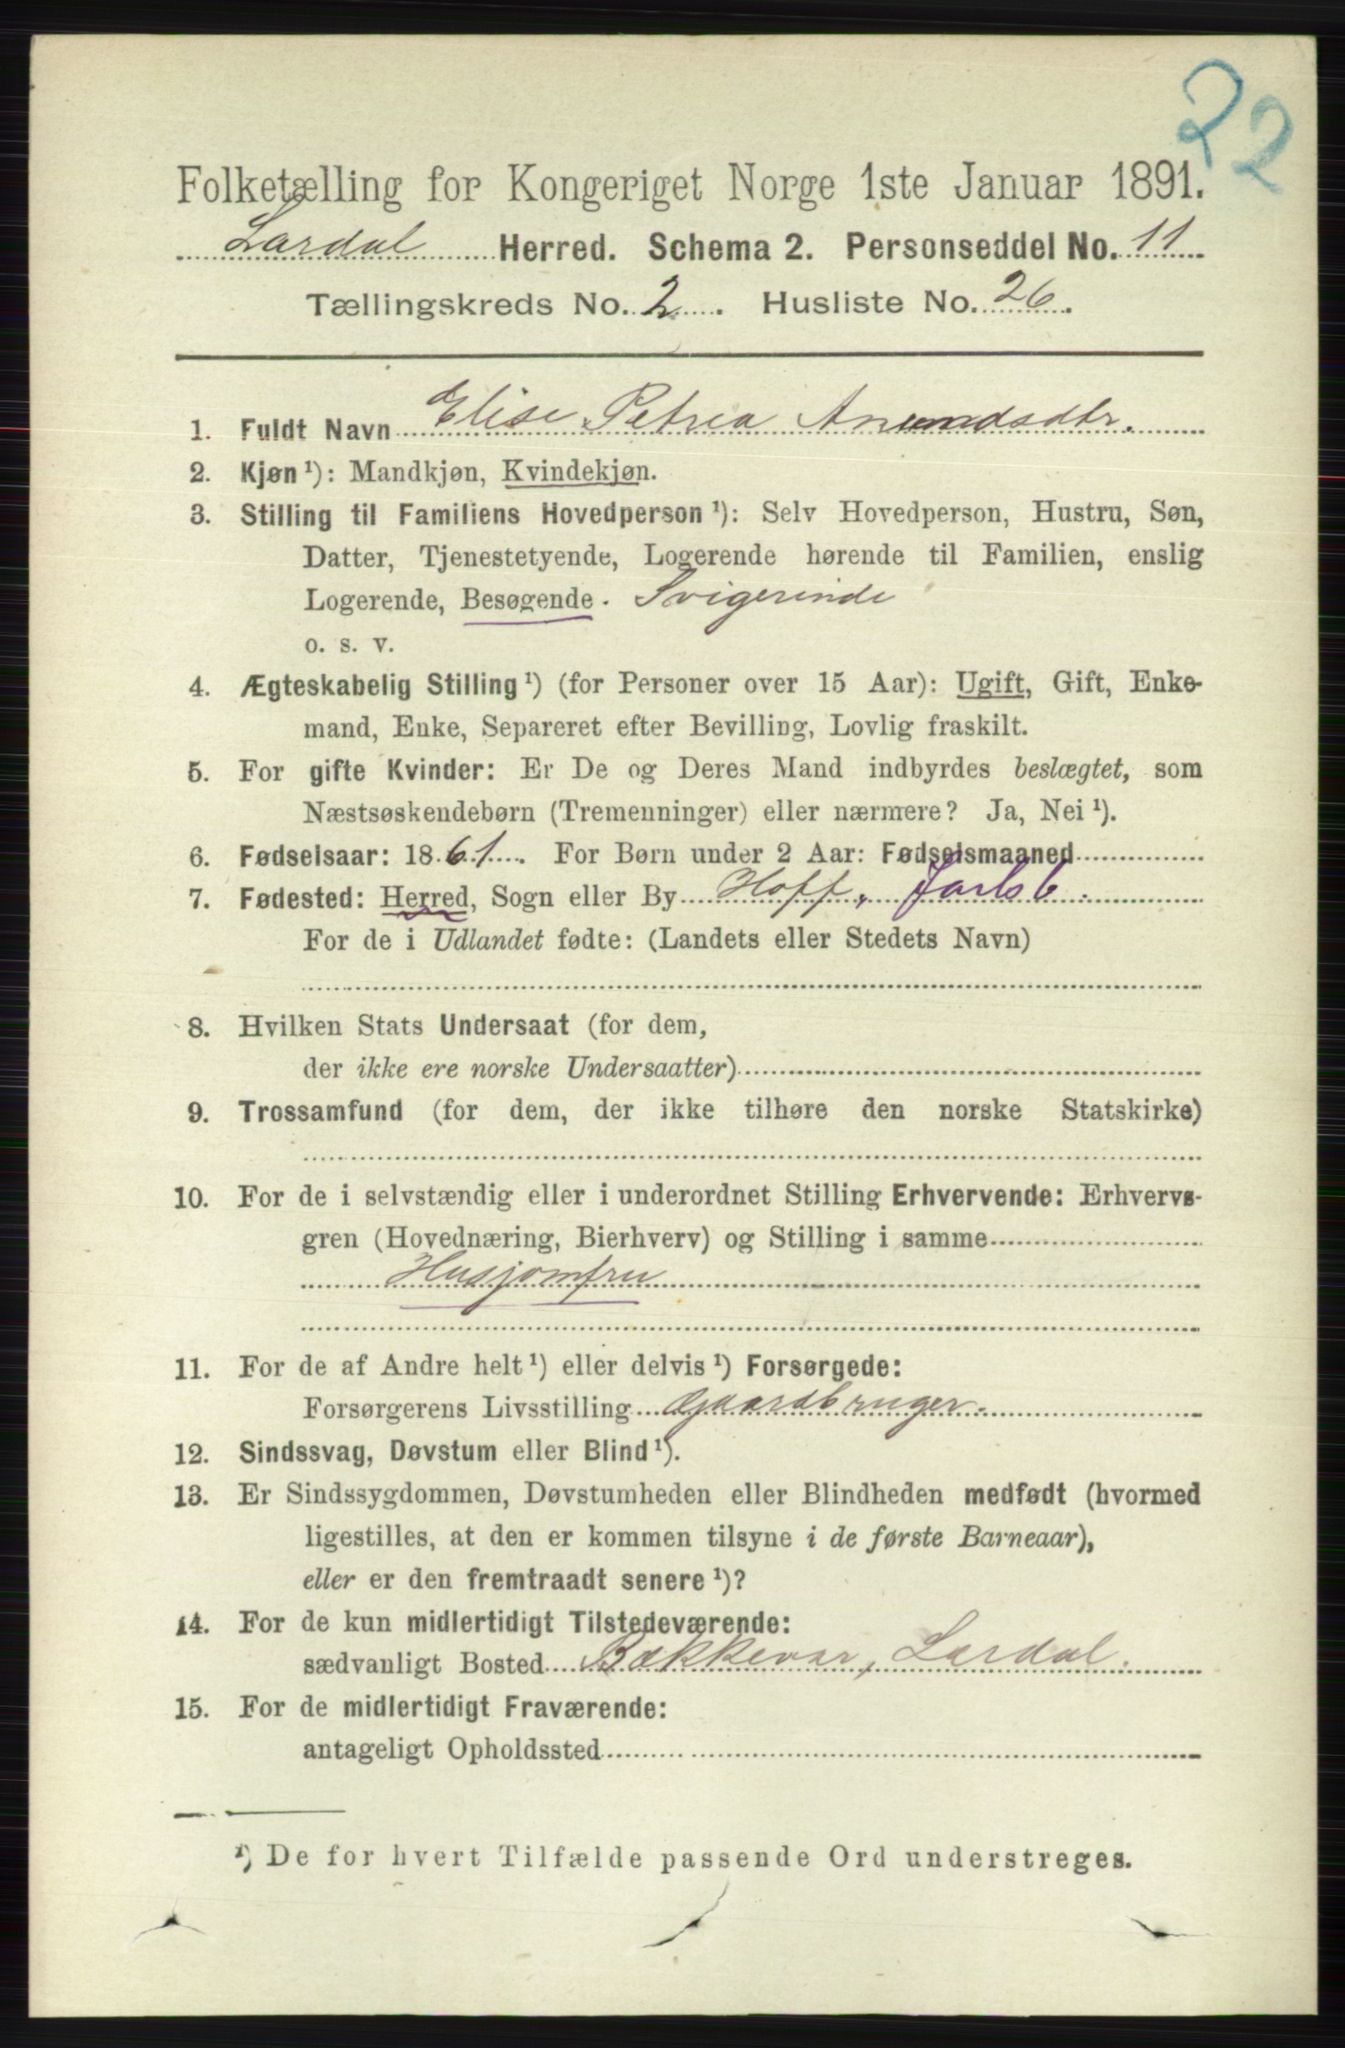 22
Folketælling for Kongeriget Norge 1ste Januar 1891.
Lardal Herred. Schema 2. Personseddel No. 11
Tællingskreds No. 2. Husliste No. 26.
1. Fuldt Navn Elise Petrea Anundsdtr.
2. Kjøn ¹): Mandkjøn, Kvindekjøn.
3. Stilling til Familiens Hovedperson ¹): Selv Hovedperson, Hustru, Søn,
Datter, Tjenestetyende, Logerende hørende til Familien, enslig
Logerende, Besøgende. Svigerinde
o. s. v.
4. Ægteskabelig Stilling ¹) (for Personer over 15 Aar): Ugift, Gift, Enke-
mand, Enke, Separeret efter Bevilling, Lovlig fraskilt.
5. For gifte Kvinder: Er De og Deres Mand indbyrdes beslægtet, som
Næstsøskendebørn (Tremenninger) eller nærmere? Ja, Nei ¹).
6. Fødselsaar: 1861. For Børn under 2 Aar: Fødselsmaaned
7. Fødested: Herred, Sogn eller By Hoff, Jarlsb.
For de i Udlandet fødte: (Landets eller Stedets Navn)
8. Hvilken Stats Undersaat (for dem,
der ikke ere norske Undersaatter)
9. Trossamfund (for dem, der ikke tilhøre den norske Statskirke)
10. For de i selvstændig eller i underordnet Stilling Erhvervende: Erhvervs-
gren (Hovednæring, Bierhverv) og Stilling i samme
Husjomfru
11. For de af Andre helt ¹) eller delvis ¹) Forsørgede:
Forsørgerens Livsstilling Gaardbruger.
12. Sindssvag, Døvstum eller Blind ¹).
13. Er Sindssygdommen, Døvstumheden eller Blindheden medfødt (hvormed
ligestilles, at den er kommen tilsyne i de første Barneaar),
eller er den fremtraadt senere ¹)?
14. For de kun midlertidigt Tilstedeværende:
sædvanligt Bosted Bakkevar, Lardal.
15. For de midlertidigt Fraværende:
antageligt Opholdssted
¹) De for hvert Tilfælde passende Ord understreges.